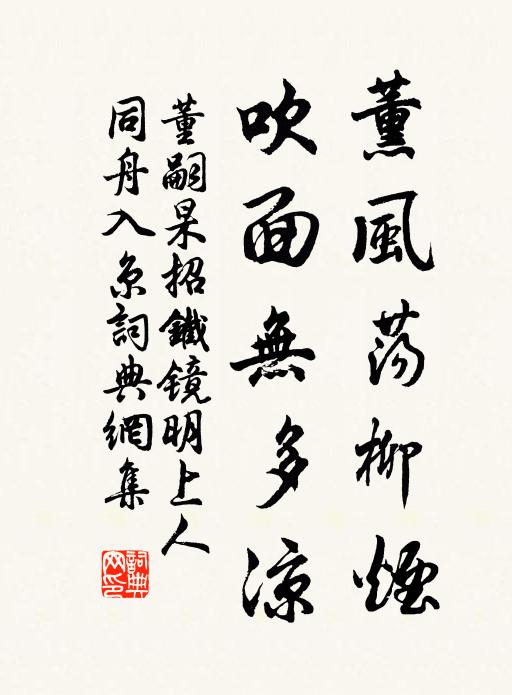 薰風荡柳煙
吹面無多涼
董嗣杲招鐵镜明上人
同舟入京詞典網集
詞典
网印